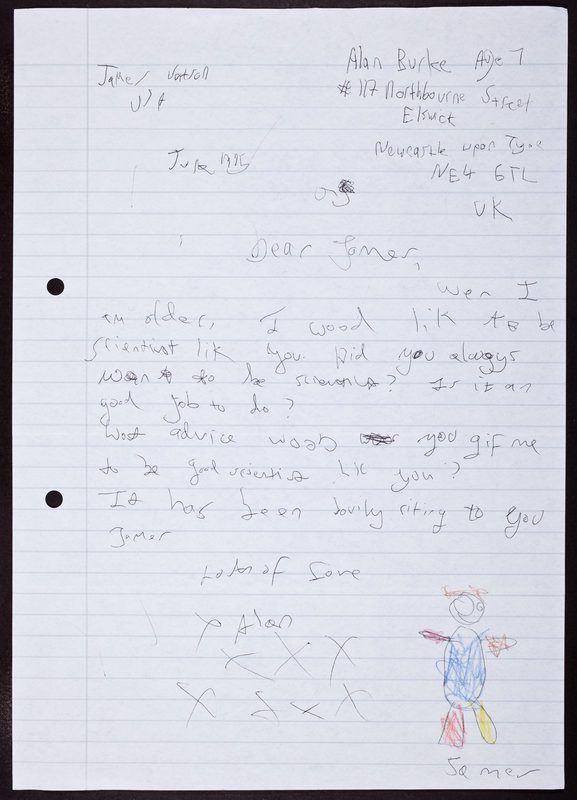 Alan Burke Age 7
James Watson
# 117 Northbourne Street
USA
Elswick
Newcastle upon Tyne
June 1995
NE4 6TL
UK
Dear James,
Wen I
am older, I wood lik to be
scientist lik you. Did you always
want to be scientist? Is it an
good job to do?
Wost advice woob you gif me
to be good scientist lik you?
It has been lovily riting to you
James
Lots of Love
X Alan
X X X
X X X X
James